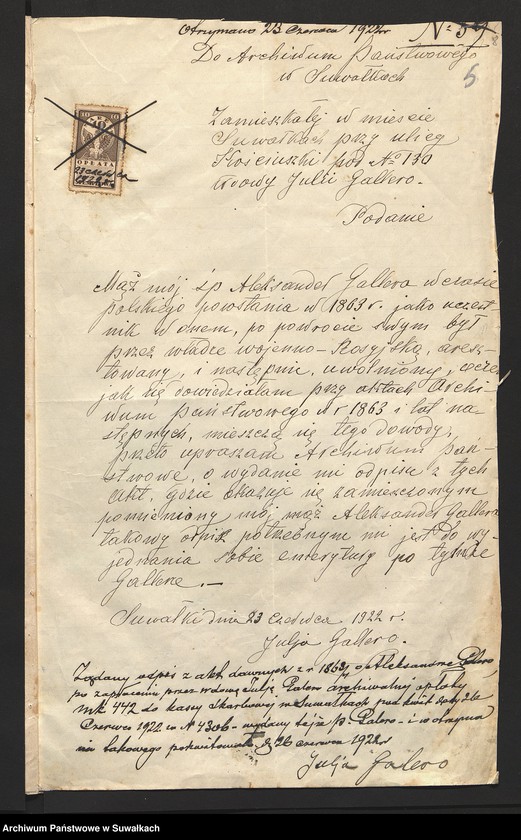 Otrzymano 23 czerwca 1922 r
№ 59
5
Do Archiwum Państwowego
w Suwałkach
Zamieszkałej w mieście
Suwałkach przy ulicy
Kościuszki pod № 130
wdowy Julji Gallero.
Podanie
OPŁATA
Mąż mój śp Aleksander Gallera w czasie
polskiego powstania w 1863 r. jako uczest-
nik w onem, po powrocie swym był
przez władze wojenno-Rosyjską, aresz-
towany, i następnie, uwolniony,
jak się dowiedziałam przy aktach Archi-
wum Państwowego w r 1863 i lat na-
stępnych, mieszczą się tego dowody,
przeto upraszam Archiwum pań-
stwowe, o wydanie mi odpisu z tych
akt, gdzie okazuje się zamieszczonym
pomieniony mój mąż Aleksander Gallera
takowy odpis potrzebnym mi jest do wy-
jednania sobie emerytury po tymże
Gallerze.-
Suwałki dnia 23 Czerwca 1922 r.
Julja Gallero.
Żądany odpis z akt dawnych z r 1863/4 o Aleksandrze Galero,
po zapłaceniu przez wdowę Julję Galero archiwalnej opłaty
mk 442 do kasy skarbowej w Suwałkach pod kwit daty 26
Czerwca 1922 r. № 4306 - wydany tejże p. Galero - i w otrzyma
niu takowego pokwitowała. D 26 czerwca 1922 r
Julja Galero
Archiwum Państwowe w Suwałkach